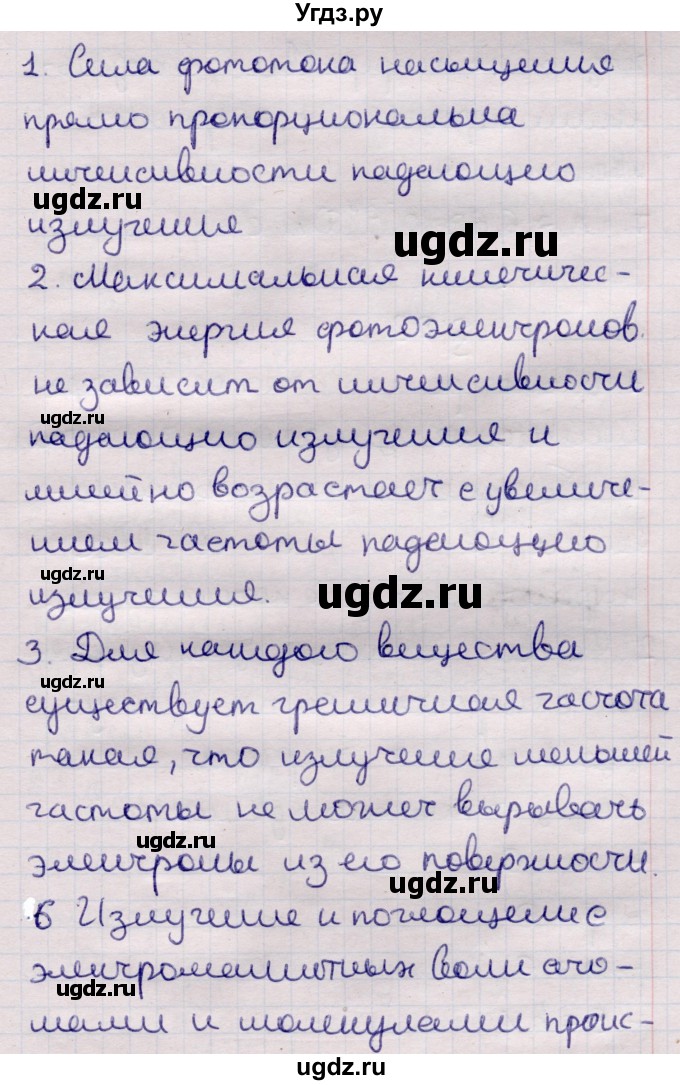 Угдз.ру
1. Сила фототока насыщения
прямо пропорциональна
интенсивности падающего
ugdz.ru
излучения
ugdz.ru
2. Максимальная кинетичес-
кая энергия фотоэлектронов
не зависит от интенсивности
ugdz.ru
падающего излучения и
линейно возрастает с увеличе-
нием частоты падающего
ugdz.ru
излучения.
ugdz.ru
3. Для каждого вещества
ugdz.ru
существует граничная частота
такая, что излучение меньшей
частоты не может вырывать
ugdz.ru
электроны из его поверхности.
ugdz.ru
6 Излучение и поглощение
электромагнитных волн ато-
ugdz.ru
мами и молекулами проис-
ugdz.ru